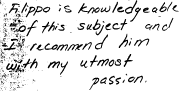 Filippo is knowledgeable
of this subject and
I recommend him
with my utmost
passion.